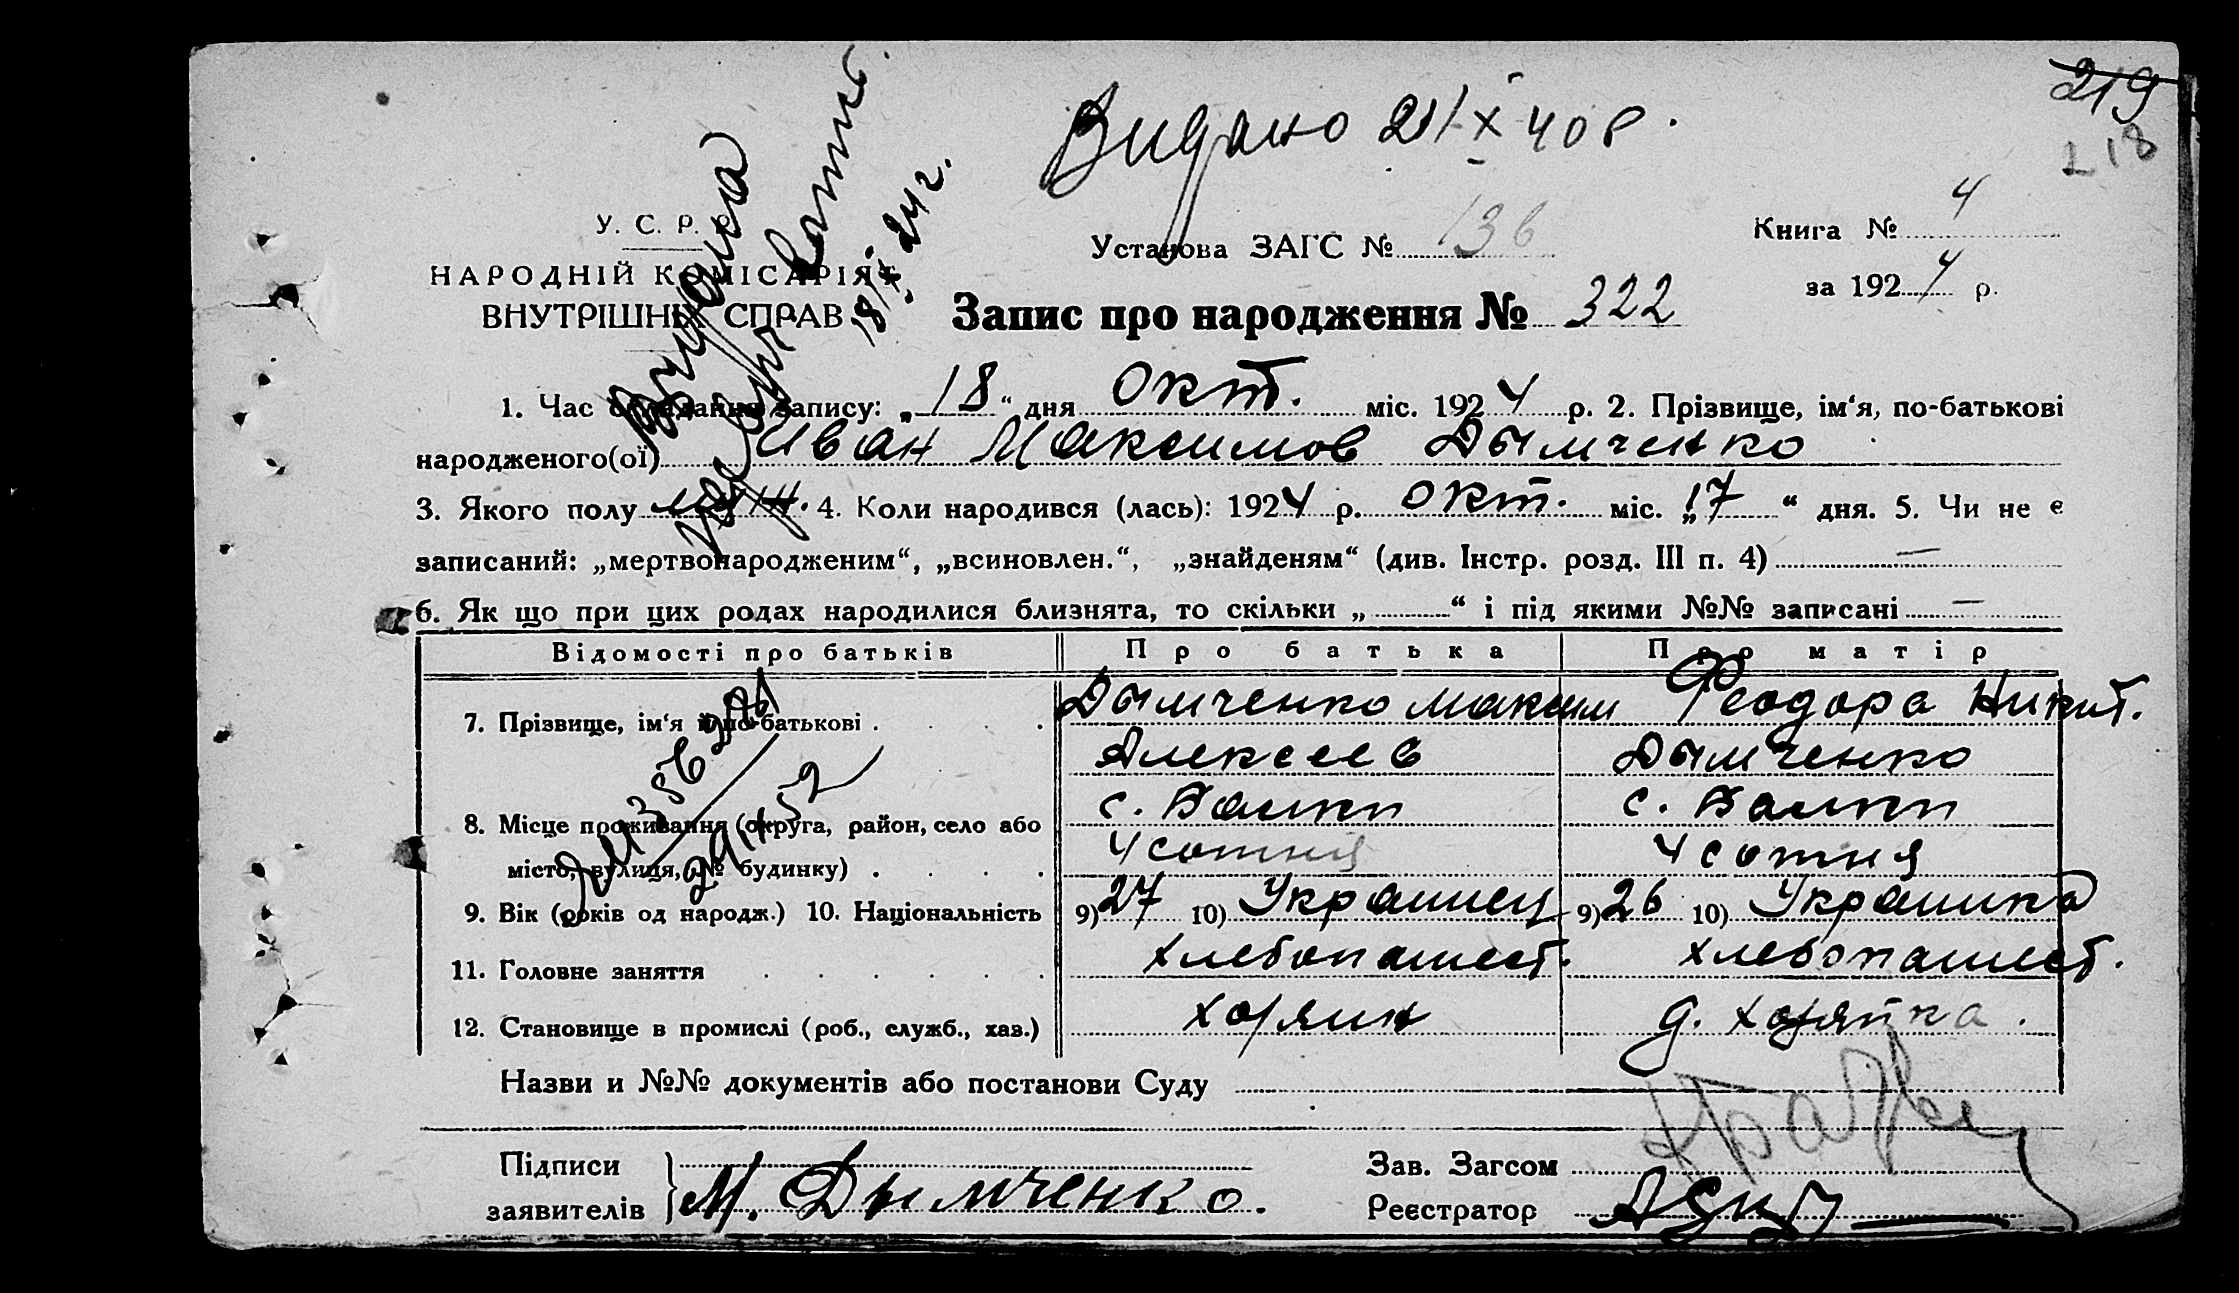 219
218
Видано 21/X 40 р.
У. С. Р. Р.
НАРОДНІЙ КОМІСАРІЯТ
ВНУТРІШНІХ СПРАВ
Видана
18/X 24 г.
Установа ЗАГС № 136
Книга № 4
за 1924 р.
Запис про народження № 322
1. Час складання запису: „18“ дня Окт. міс. 1924 р. 2. Прізвище, ім‘я, по-батькові
народженого(ої) Иван Максимов Дымченко
3. Якого полу муж. 4. Коли народився (лась): 1924 р. Окт. міс. „17“ дня. 5. Чи не є
записаний: „мертвонародженим“, „всиновлен.“, „знайденям“ (див. Інстр. розд. III п. 4) —
6. Як що при цих родах народилися близнята, то скільки „ “ і під якими №№ записані —
Відомості про батьків Про батька Про матір
7. Прізвище, ім‘я й по-батькові . . Дымченко Максим Феодора Никит.
Алексеев Дымченко
8. Місце проживання (округа, район, село або с. Валки с. Валки
місто, вулиця, № будинку) . . . . 4 сотня 4 сотня
9. Вік (років од народж.) 10. Національність 9) 27 10) Украинец 9) 26 10) Украинка
11. Головне заняття . . . . . . хлебопашест. хлебопашест.
12. Становище в промислі (роб., служб., хаз.) хозяин д. хозяйка.
Назви и №№ документів або постанови Суду
Підписи
заявителів М. Дымченко.
Зав. Загсом
Реєстратор